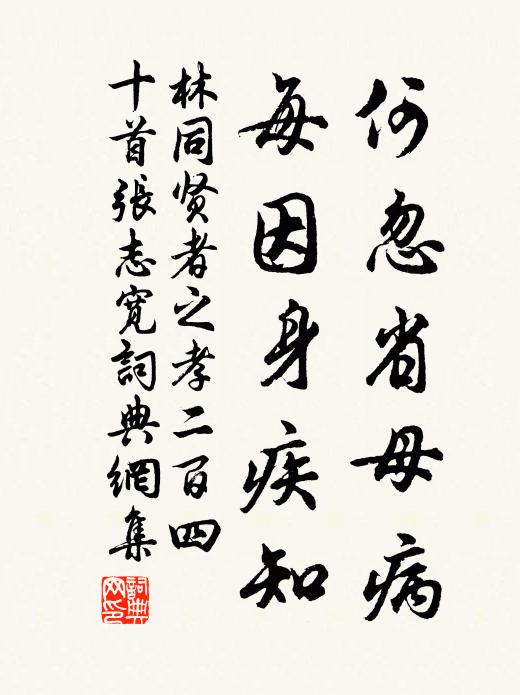 何忽省母病
每因身疾知
林同贤者之孝二百四
十首張志寬詞典網集
詞典網印